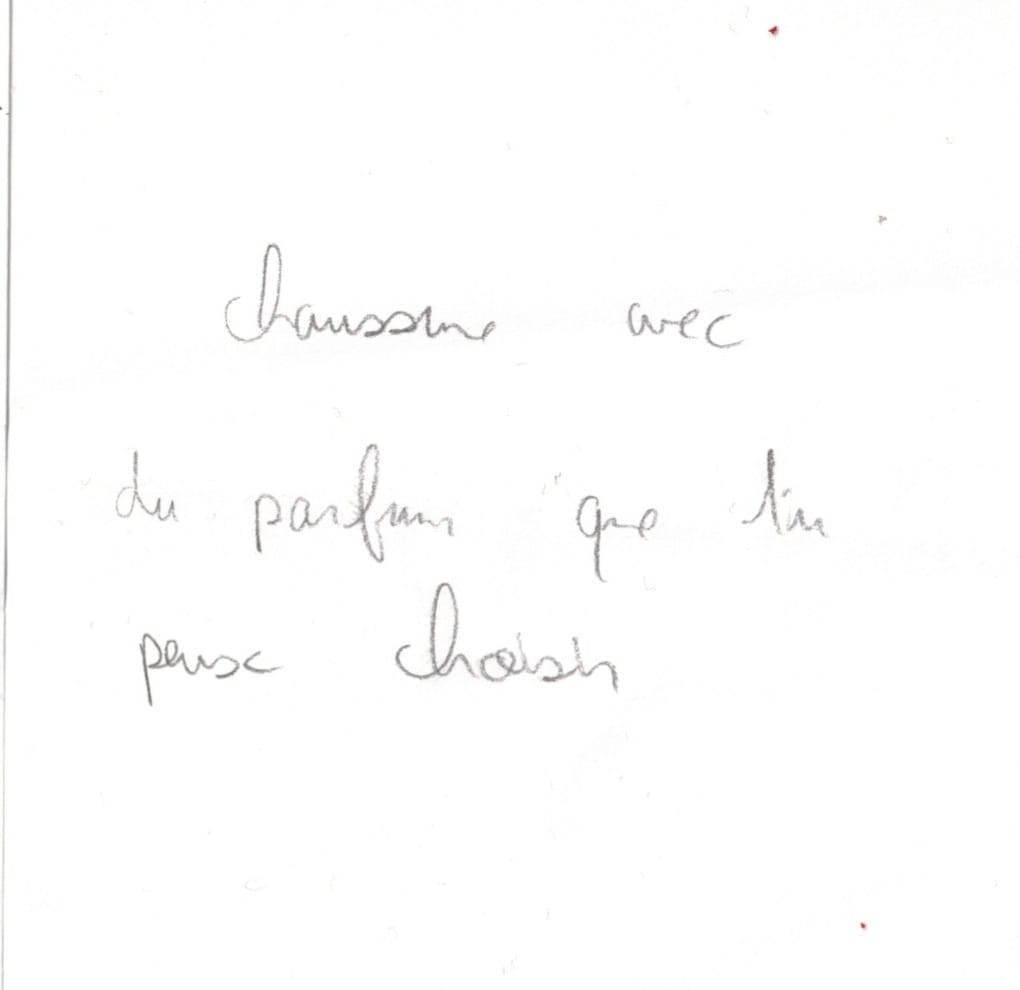 chaussure avec
du parfum que tu
peux choisir